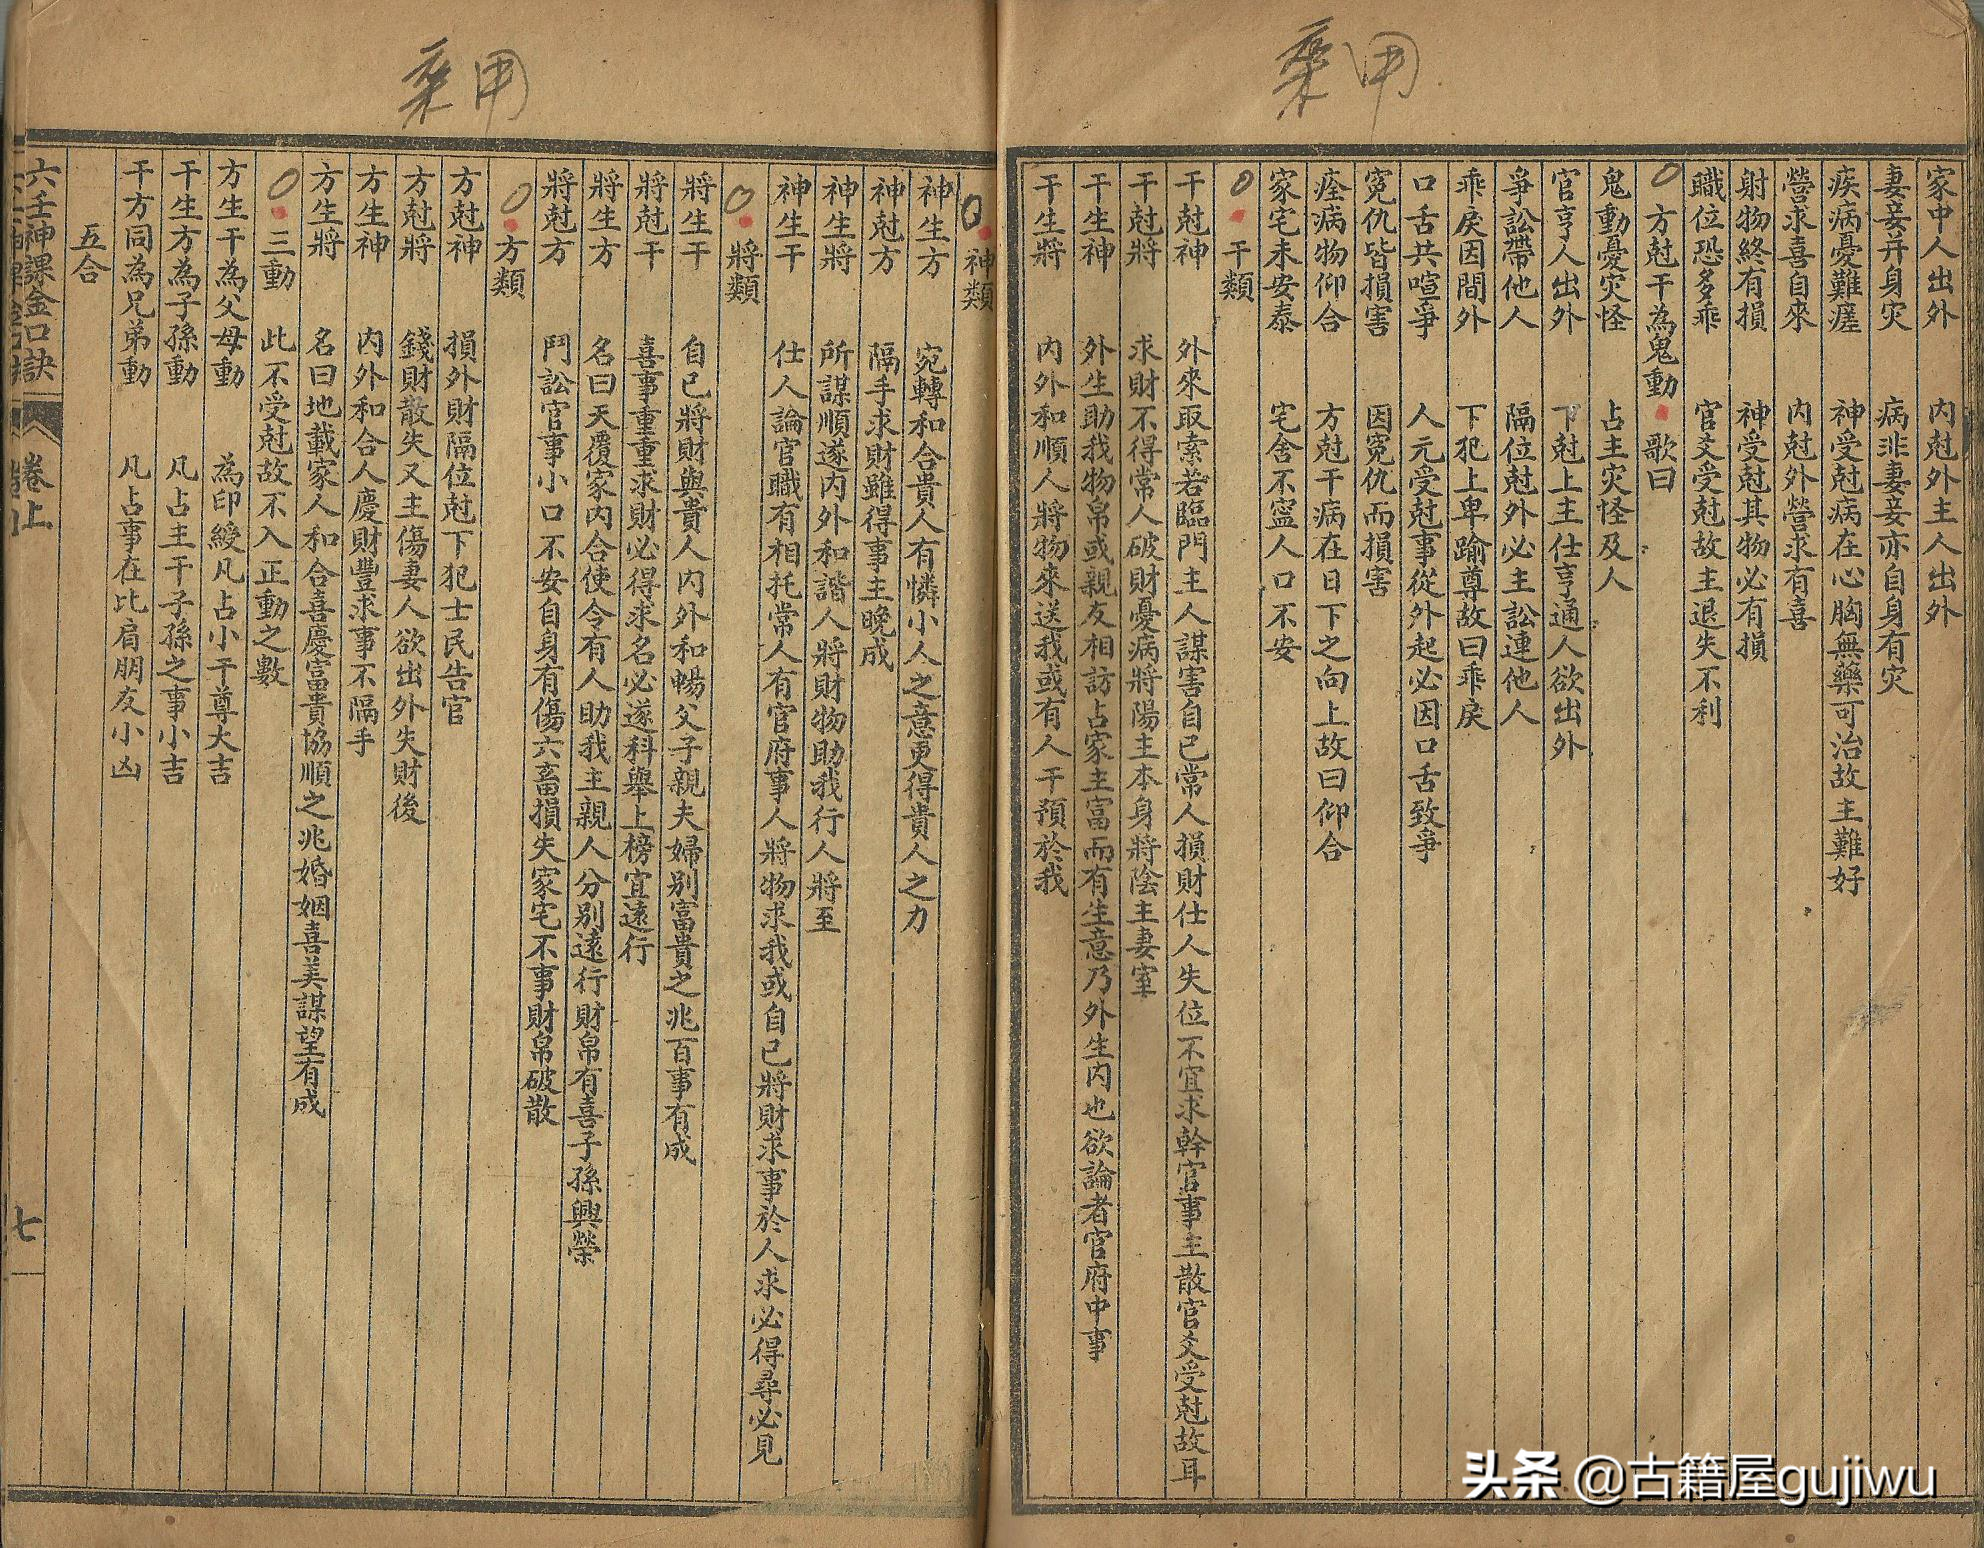 家中人出外　內尅外主人出外
妻妾并身灾　病非妻妾亦自身有灾
疾病憂難瘥　神受尅病在心胸無藥可治故主難好
營求喜自來　內尅外營求有喜
射物終有損　神受尅其物必有損
職位恐多乖　官爻受尅故主退失不利
方尅干為鬼動　歌曰
鬼動憂灾怪　占主灾怪及人
官亨人出外　下尅上主仕亨通人欲出外
爭訟帶他人　隔位尅外必主訟連他人
乖戾因間外　下犯上卑踰尊故曰乖戾
口舌共喧爭　人元受尅事從外起必因口舌致爭
冤仇皆損害　因冤仇而損害
痊病物仰合　方尅干病在日下之向上故曰仰合
家宅未安泰　宅舍不寧人口不安
干類
干尅神　外來取索若臨門主人謀害自己常人損財仕人失位不宜求幹官事主散官爻受尅故耳
干尅將　求財不得常人破財憂病將陽主本身將陰主妻室
干生神　外生助我物帛或親友相訪占家主富而有生意乃外生內也欲論者官府中事
干生將　內外和順人將物來送我或有人干預於我
神類
神生方　宛轉和合貴人有憐小人之意更得貴人之力
神尅方　隔手求財雖得事主晚成
神生將　所謀順遂內外和諧人將財物助我行人將至
神生干　仕人論官職有相托常人有官府事人將物求我或自己將財求事於人求必得尋必見
將類
將生干　自己將財與貴人內外和暢父子親夫婦別富貴之兆百事有成
將尅干　喜事重重求財必得求名必遂科舉上榜宜遠行
將生方　名曰天覆家內合使令有人助我主親人分別遠行財帛有喜子孫興榮
將尅方　鬥訟官事小口不安自身有傷六畜損失家宅不事財帛破散
方類
方尅神　損外財隔位尅下犯士民告官
方尅將　錢財散失又主傷妻人欲出外失財後
方生神　內外和合人慶財豐求事不隔手
方生將　名曰地載家人和合喜慶富貴協順之兆婚姻喜美謀望有成
三動　此不受尅故不入正動之數
方生干為父母動　為印綬凡占小干尊大吉
干生方為子孫動　凡占主干子孫之事小吉
干方同為兄弟動　凡占事在比肩朋友小凶
五合
六壬神課金口訣　卷上　七
头条 @古籍屋gujiwu